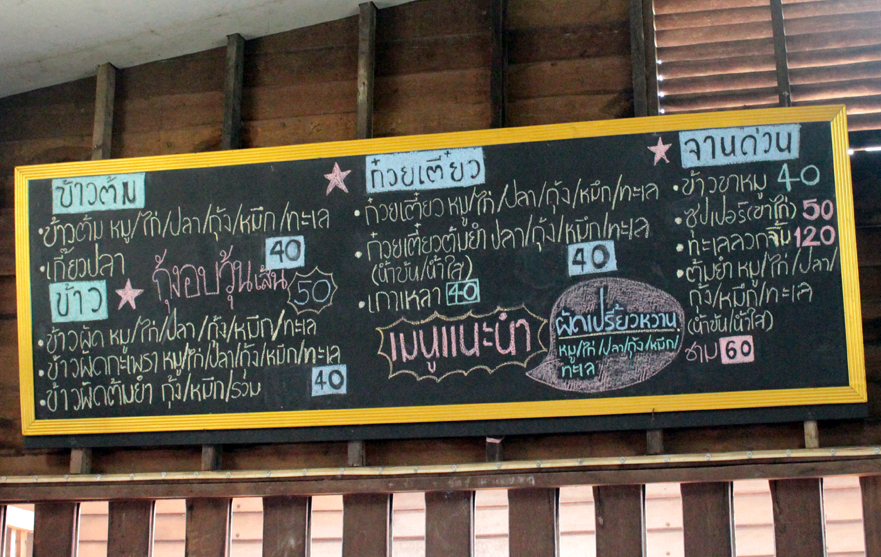 ข้าวต้ม
• ข้าวต้ม หมู/ไก่/ปลา/กุ้ง/หมึก/ทะเล
• เกี๊ยวปลา
40
กุ้งอบวุ้นเส้น 50
ข้าว
• ข้าวผัด หมู/ไก่/ปลา/กุ้ง/หมึก/ทะเล
• ข้าวผัดกะเพรา หมู/ไก่/ปลา/กุ้ง/หมึก/ทะเล
• ข้าวผัดต้มยำ กุ้ง/หมึก/รวม
40
ก๋วยเตี๋ยว
• ก๋วยเตี๋ยว หมู/ไก่/ปลา/กุ้ง/หมึก/ทะเล
• ก๋วยเตี๋ยวต้มยำ ปลา/กุ้ง/หมึก/ทะเล
(น้ำข้น/น้ำใส)
40
• เกาเหลา 40
เมนูแนะนำ
ผัดเปรี้ยวหวาน
หมู/ไก่/ปลา/กุ้ง/หมึก/
ทะเล
จานด่วน
• ข้าวขาหมู 40
• ซุปเปอร์(ขาไก่) 50
• ทะเลลวกจิ้ม 120
• ต้มยำ หมู/ไก่/ปลา/
กุ้ง/หมึก/ทะเล
(น้ำข้น/น้ำใส)
ชาม 60